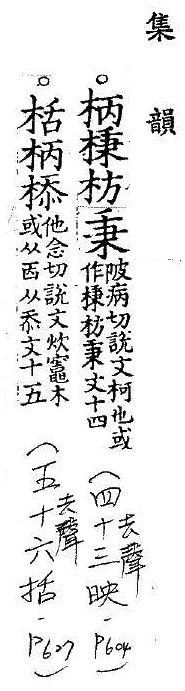 集韻
○柄棅枋秉陂病切說文柯也或
作棅枋秉文十四
(去聲
四十三映.P604)
○栝柄㮇他念切說文炊竈木
或从㐁从忝文十五
(去聲
五十六栝.P627)